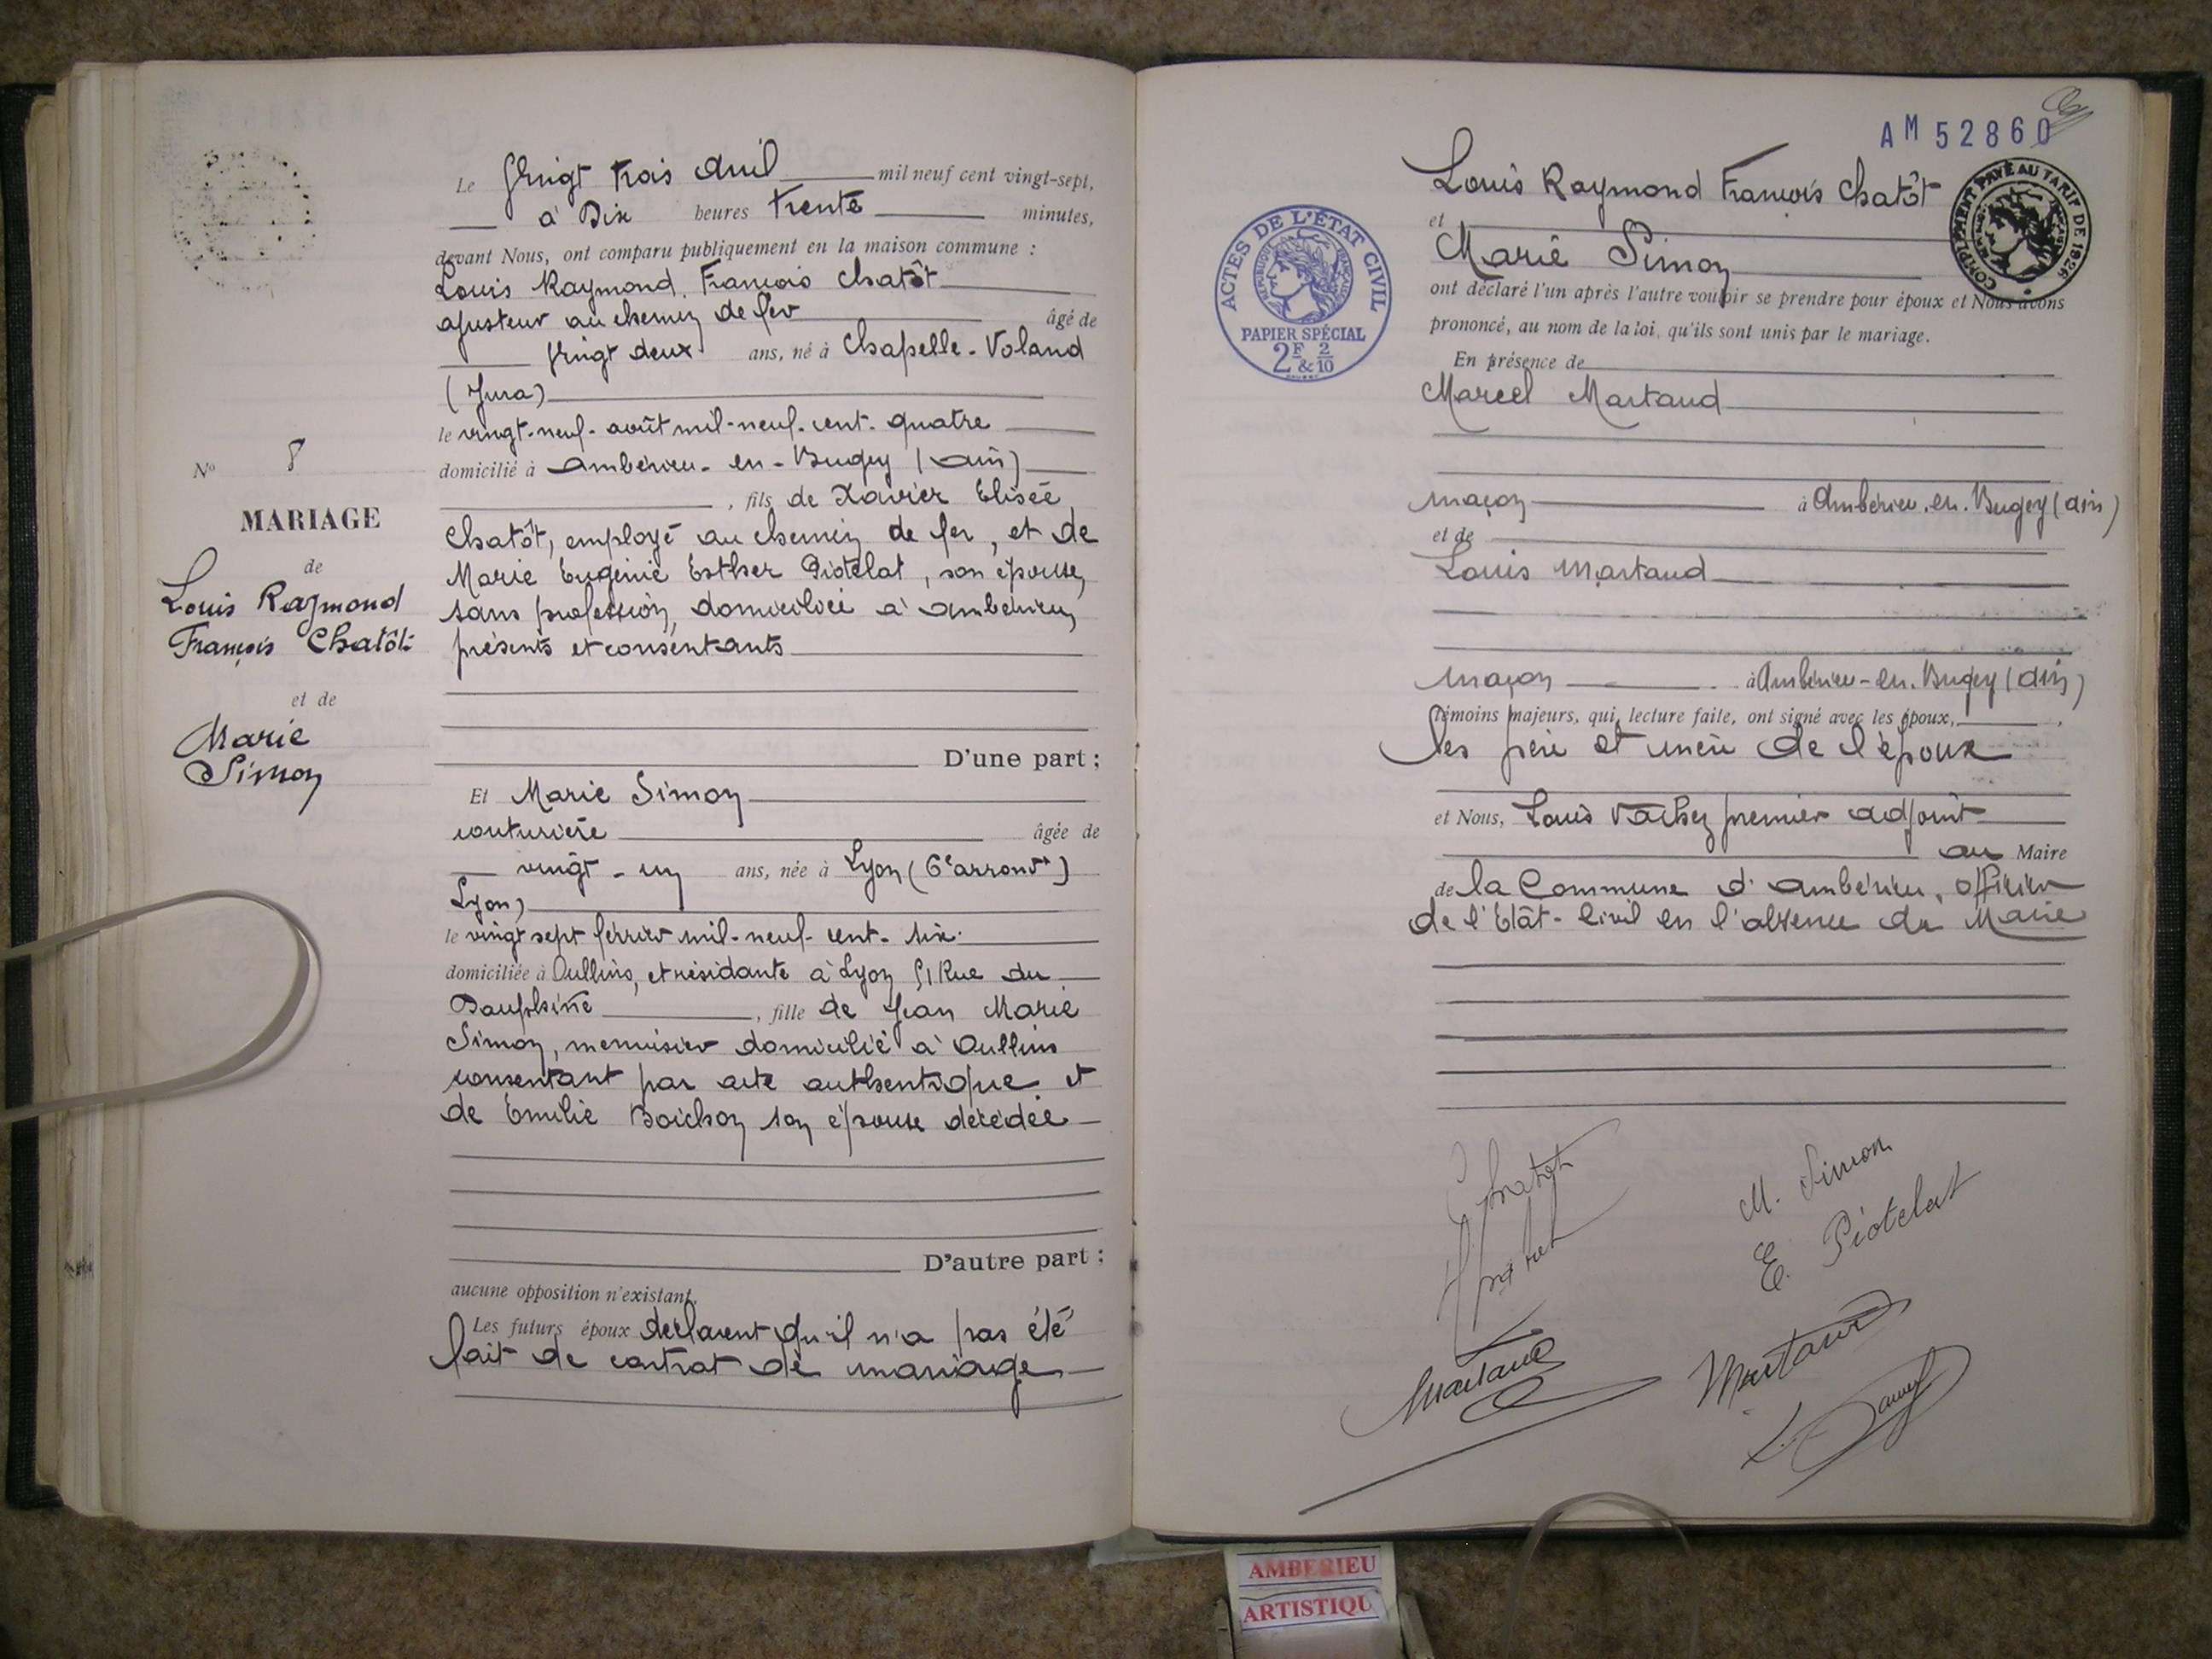 Le Vingt trois avril mil neuf cent vingt-sept,
à Dix heures trente minutes,
devant Nous, ont comparu publiquement en la maison commune :
Louis Raymond François Chatôt
ajusteur au chemin de fer âgé de
Vingt deux ans, né à Chapelle-Voland
(Jura)
le vingt-neuf août mil-neuf-cent-quatre
domicilié à Ambérieu-en-Bugey (Ain)
, fils de Xavier Elisée
Chatôt, employé au chemin de fer, et de
Marie Eugénie Esther Piotelat, son épouse,
sans profession, domiciliés à Ambérieu,
présents et consentants
D'une part ;
No 8
MARIAGE
de
Louis Raymond
François Chatôt
et de
Marie
Simon
Et Marie Simon
couturière âgée de
vingt-un ans, née à Lyon (6e arrondt)
Lyon)
le vingt sept février mil-neuf-cent-six
domiciliée à Oullins, et résidante à Lyon 51 Rue du
Dauphiné, fille de Jean Marie
Simon, menuisier domicilié à Oullins
consentant par acte authentique et
de Emilie Boichon son épouse décédée
D'autre part ;
aucune opposition n'existant.
Les futurs époux déclarent qu'il n'a pas été
fait de contrat de mariage
AM 52860
COMPLÉMENT PAYÉ AU TARIF DE 1926
ACTES DE L'ÉTAT CIVIL
RÉPUBLIQUE FRANÇAISE
PAPIER SPÉCIAL
2F & 2/10
Louis Raymond François Chatôt
et
Marie Simon
ont déclaré l'un après l'autre vouloir se prendre pour époux et Nous avons
prononcé, au nom de la loi, qu'ils sont unis par le mariage.
En présence de
Marcel Martaud
maçon à Ambérieu-en-Bugey (Ain)
et de
Louis Martaud
maçon à Ambérieu-en-Bugey (Ain)
témoins majeurs, qui, lecture faite, ont signé avec les époux,
les père et mère de l'époux
et Nous, Louis Vachez premier adjoint
au Maire
de la Commune d'Ambérieu, officier
de l'Etât-Civil en l'absence du Maire
Chatot
M. Simon
E. Piotelat
Martaud
Martaud
AMBERIEU
ARTISTIQU